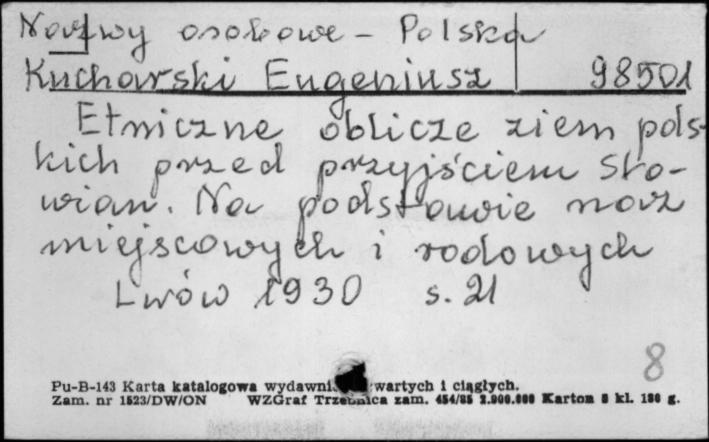 Nazwy osobowe - Polska
Kucharski Eugeniusz 98501
Etniczne oblicze ziem pols-
kich przed przyjściem Sło-
wian. Na podstawie nazw
miejscowych i rodowych
Lwów 1930 s. 21
8
Pu-B-143 Karta katalogowa wydawni wartych i ciągłych.
Zam. nr 1523/DW/ON WZGraf Trzebnica zam. 454/85 2.000.000 Karton 8 kl. 180 g.